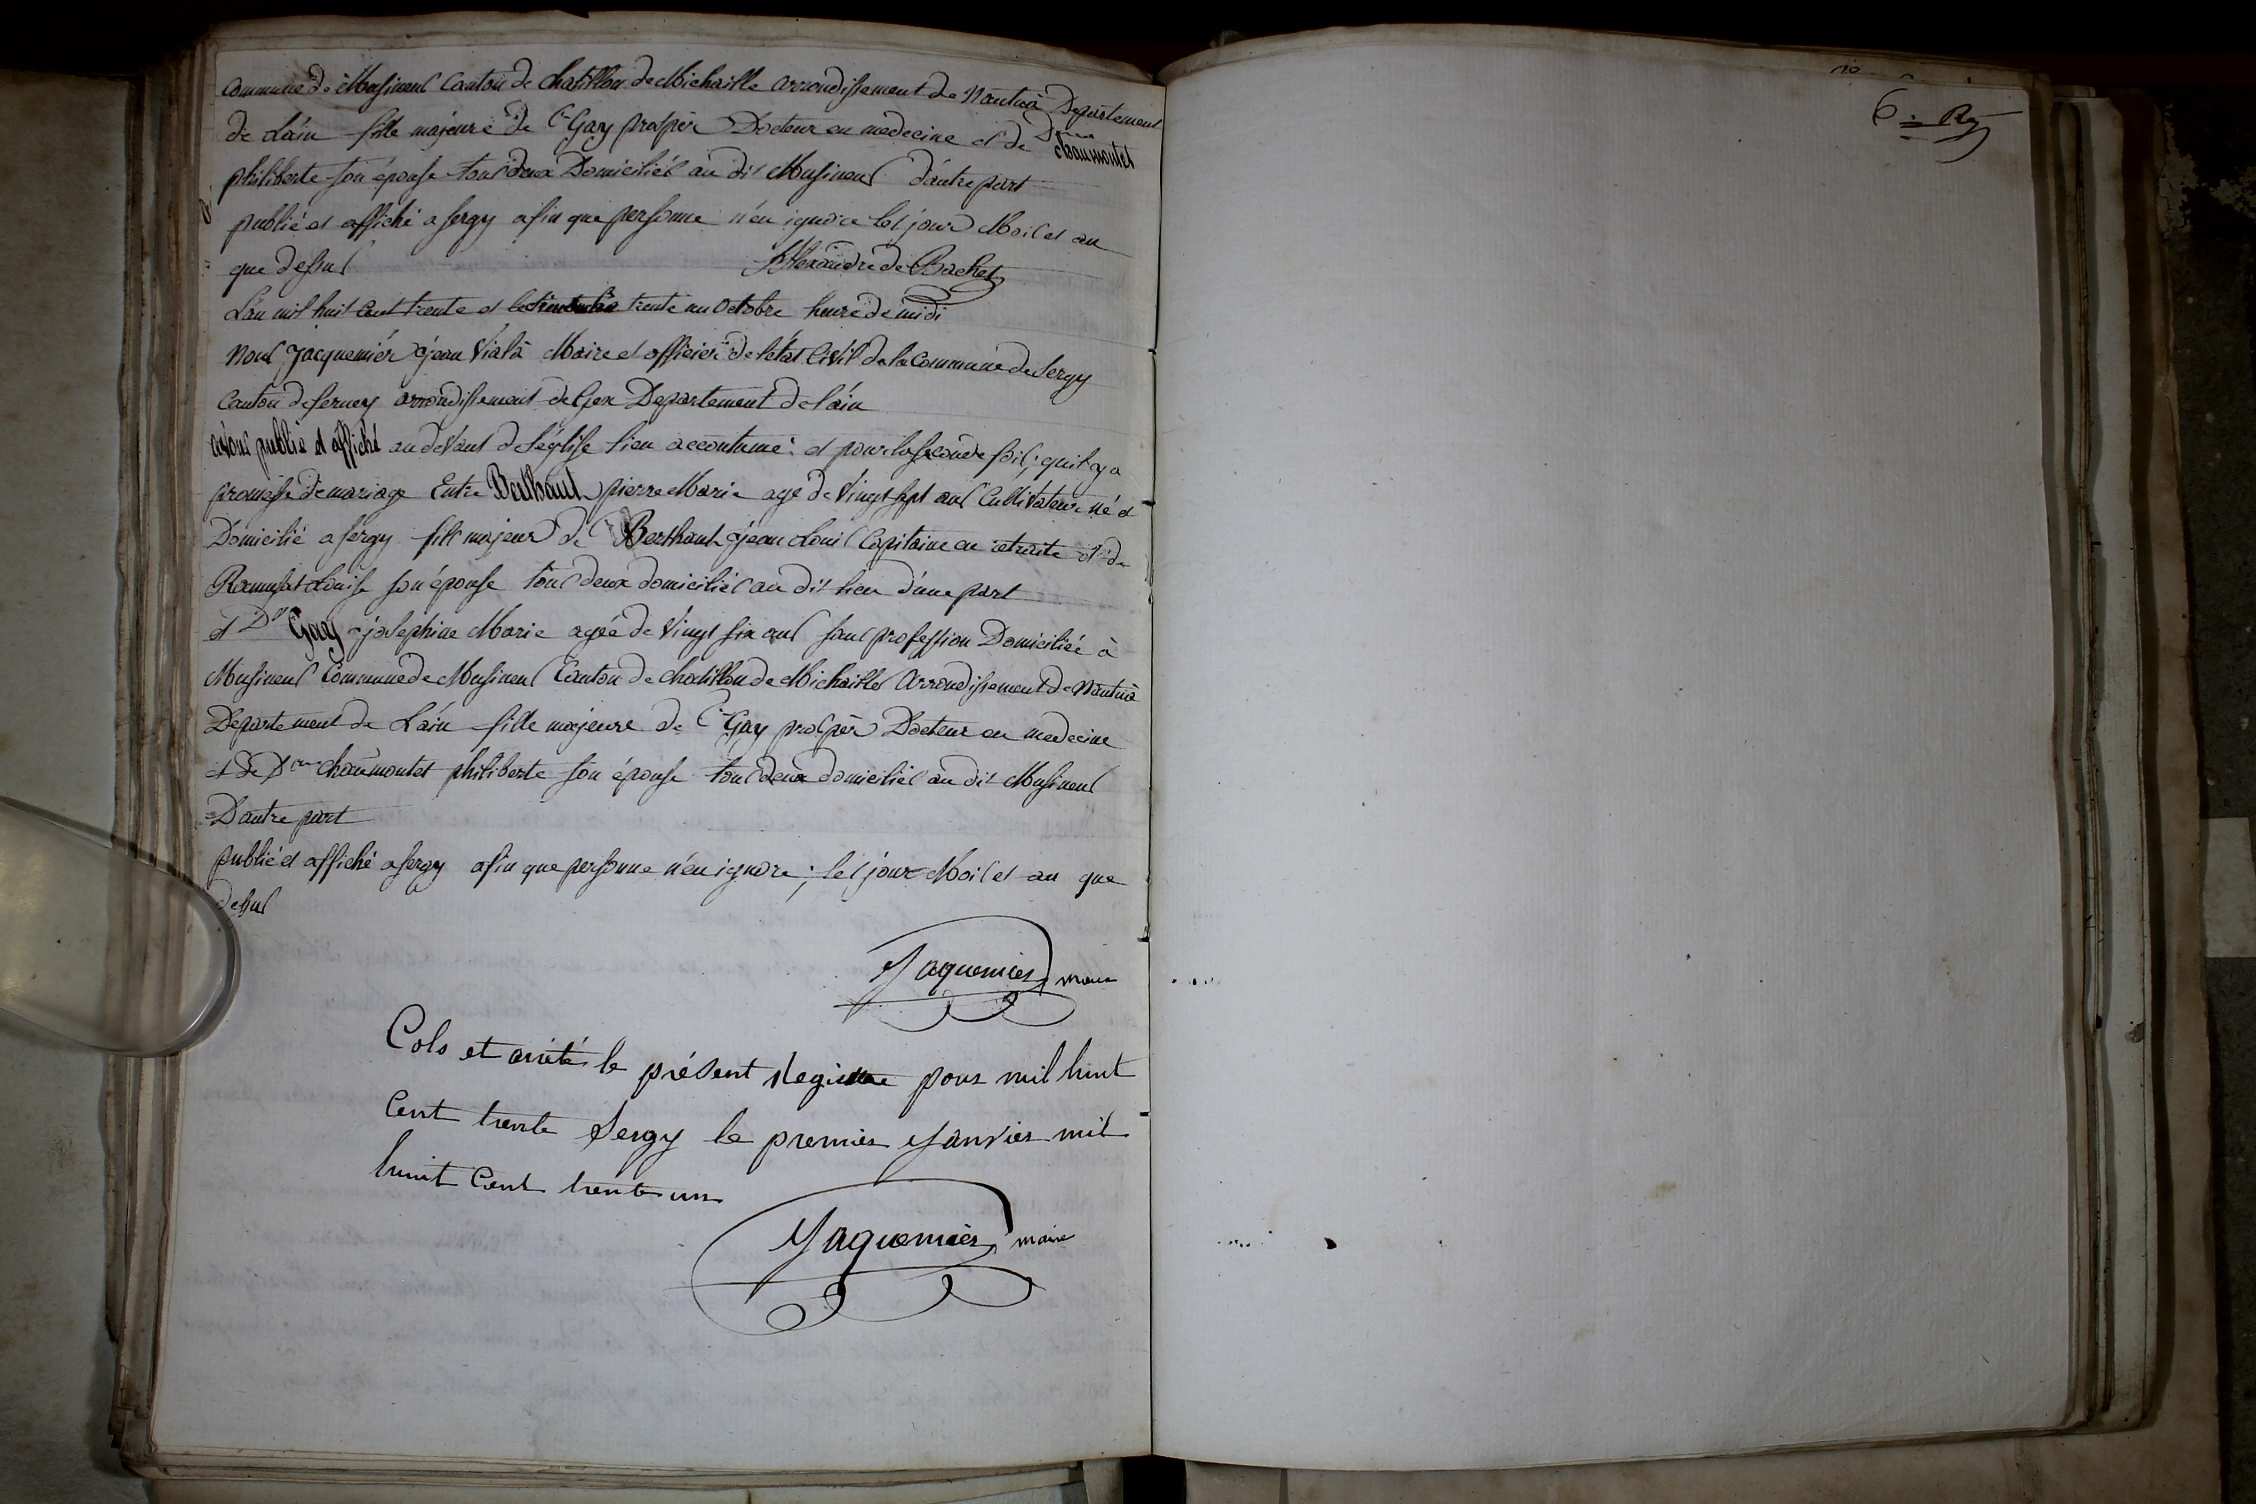 Commune de Musinens Canton de Chatillon de Michaille arrondissement de Nantua Departement
de L'ain fille majeure de Gay prospèr Docteur en medecine et de Dme Chaumontet
philiberte son épouse tous deux Domiciliés au dit Musinens d'autre part
publié et affiché a sergy afin que personne n'en ignore les jour Mois et an
que dessus Alexandre de Bachet
L'an mil huit cent trente et le trente un Octobre heure de midi
Nous Jacquemier jean Maire et officier de l'état Civil de la Commune de Sergy
Canton de ferney arrondissement de Gex Departement de l'ain
avons publié et affiché au devant de l'église lieu accoutumé; et pour la seconde fois; qu'il y a
promesse de mariage Entre Berthault pierre Marie agé de vingt sept ans Cultivateur né et
Domicilié a sergy fils majeur de Berthault jean Louis Capitaine en retraite et de
Louise son épouse tous deux domiciliés au dit lieu d'une part
et Dlle Gay joséphine Marie agée de vingt six ans sans profession Domiciliée à
Musinens Commune de Musinens Canton de chatillon de Michaille Arrondissement de Nantua
Departement de L'ain fille majeure de Gay prospèr Docteur en medecine
et de Dme Chaumontet philiberte son épouse tous deux domiciliés au dit Musinens
D'autre part
publié et affiché a sergy afin que personne n'en ignore; les jour Mois et an que
dessus
Jaquemier maire
Clos et arreté le présent Registre pour mil huit
Cent trente Sergy le premier Janvier mil
huit Cent trente un
Jaquemier maire
6